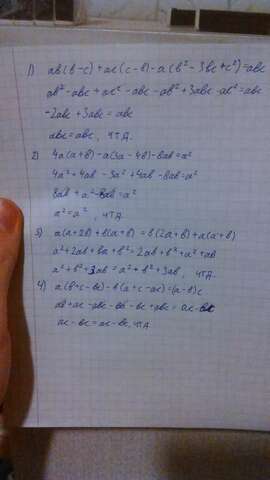 1) ab(b-c)+ac(c-b)-a(b²-3bc+c²)=abc
ab²-abc+ac²-abc-ab²+3abc-ac²=abc
-2abc+3abc=abc
abc=abc, чтд.
2) 4a(a+b)-a(3a-4b)-8ab=a²
4a²+4ab-3a²+4ab-8ab=a²
8ab+a²-8ab=a²
a²=a², чтд.
3) a(a+2b)+b(a+b)=b(2a+b)+a(a+b)
a²+2ab+ba+b²=2ab+b²+a²+ab
a²+b²+3ab=a²+b²+3ab, чтд.
4) a(b+c-bc)-b(a+c-ac)=(a-b)c
ab+ac-abc-ab-bc+abc=ac-bc
ac-bc=ac-bc, чтд